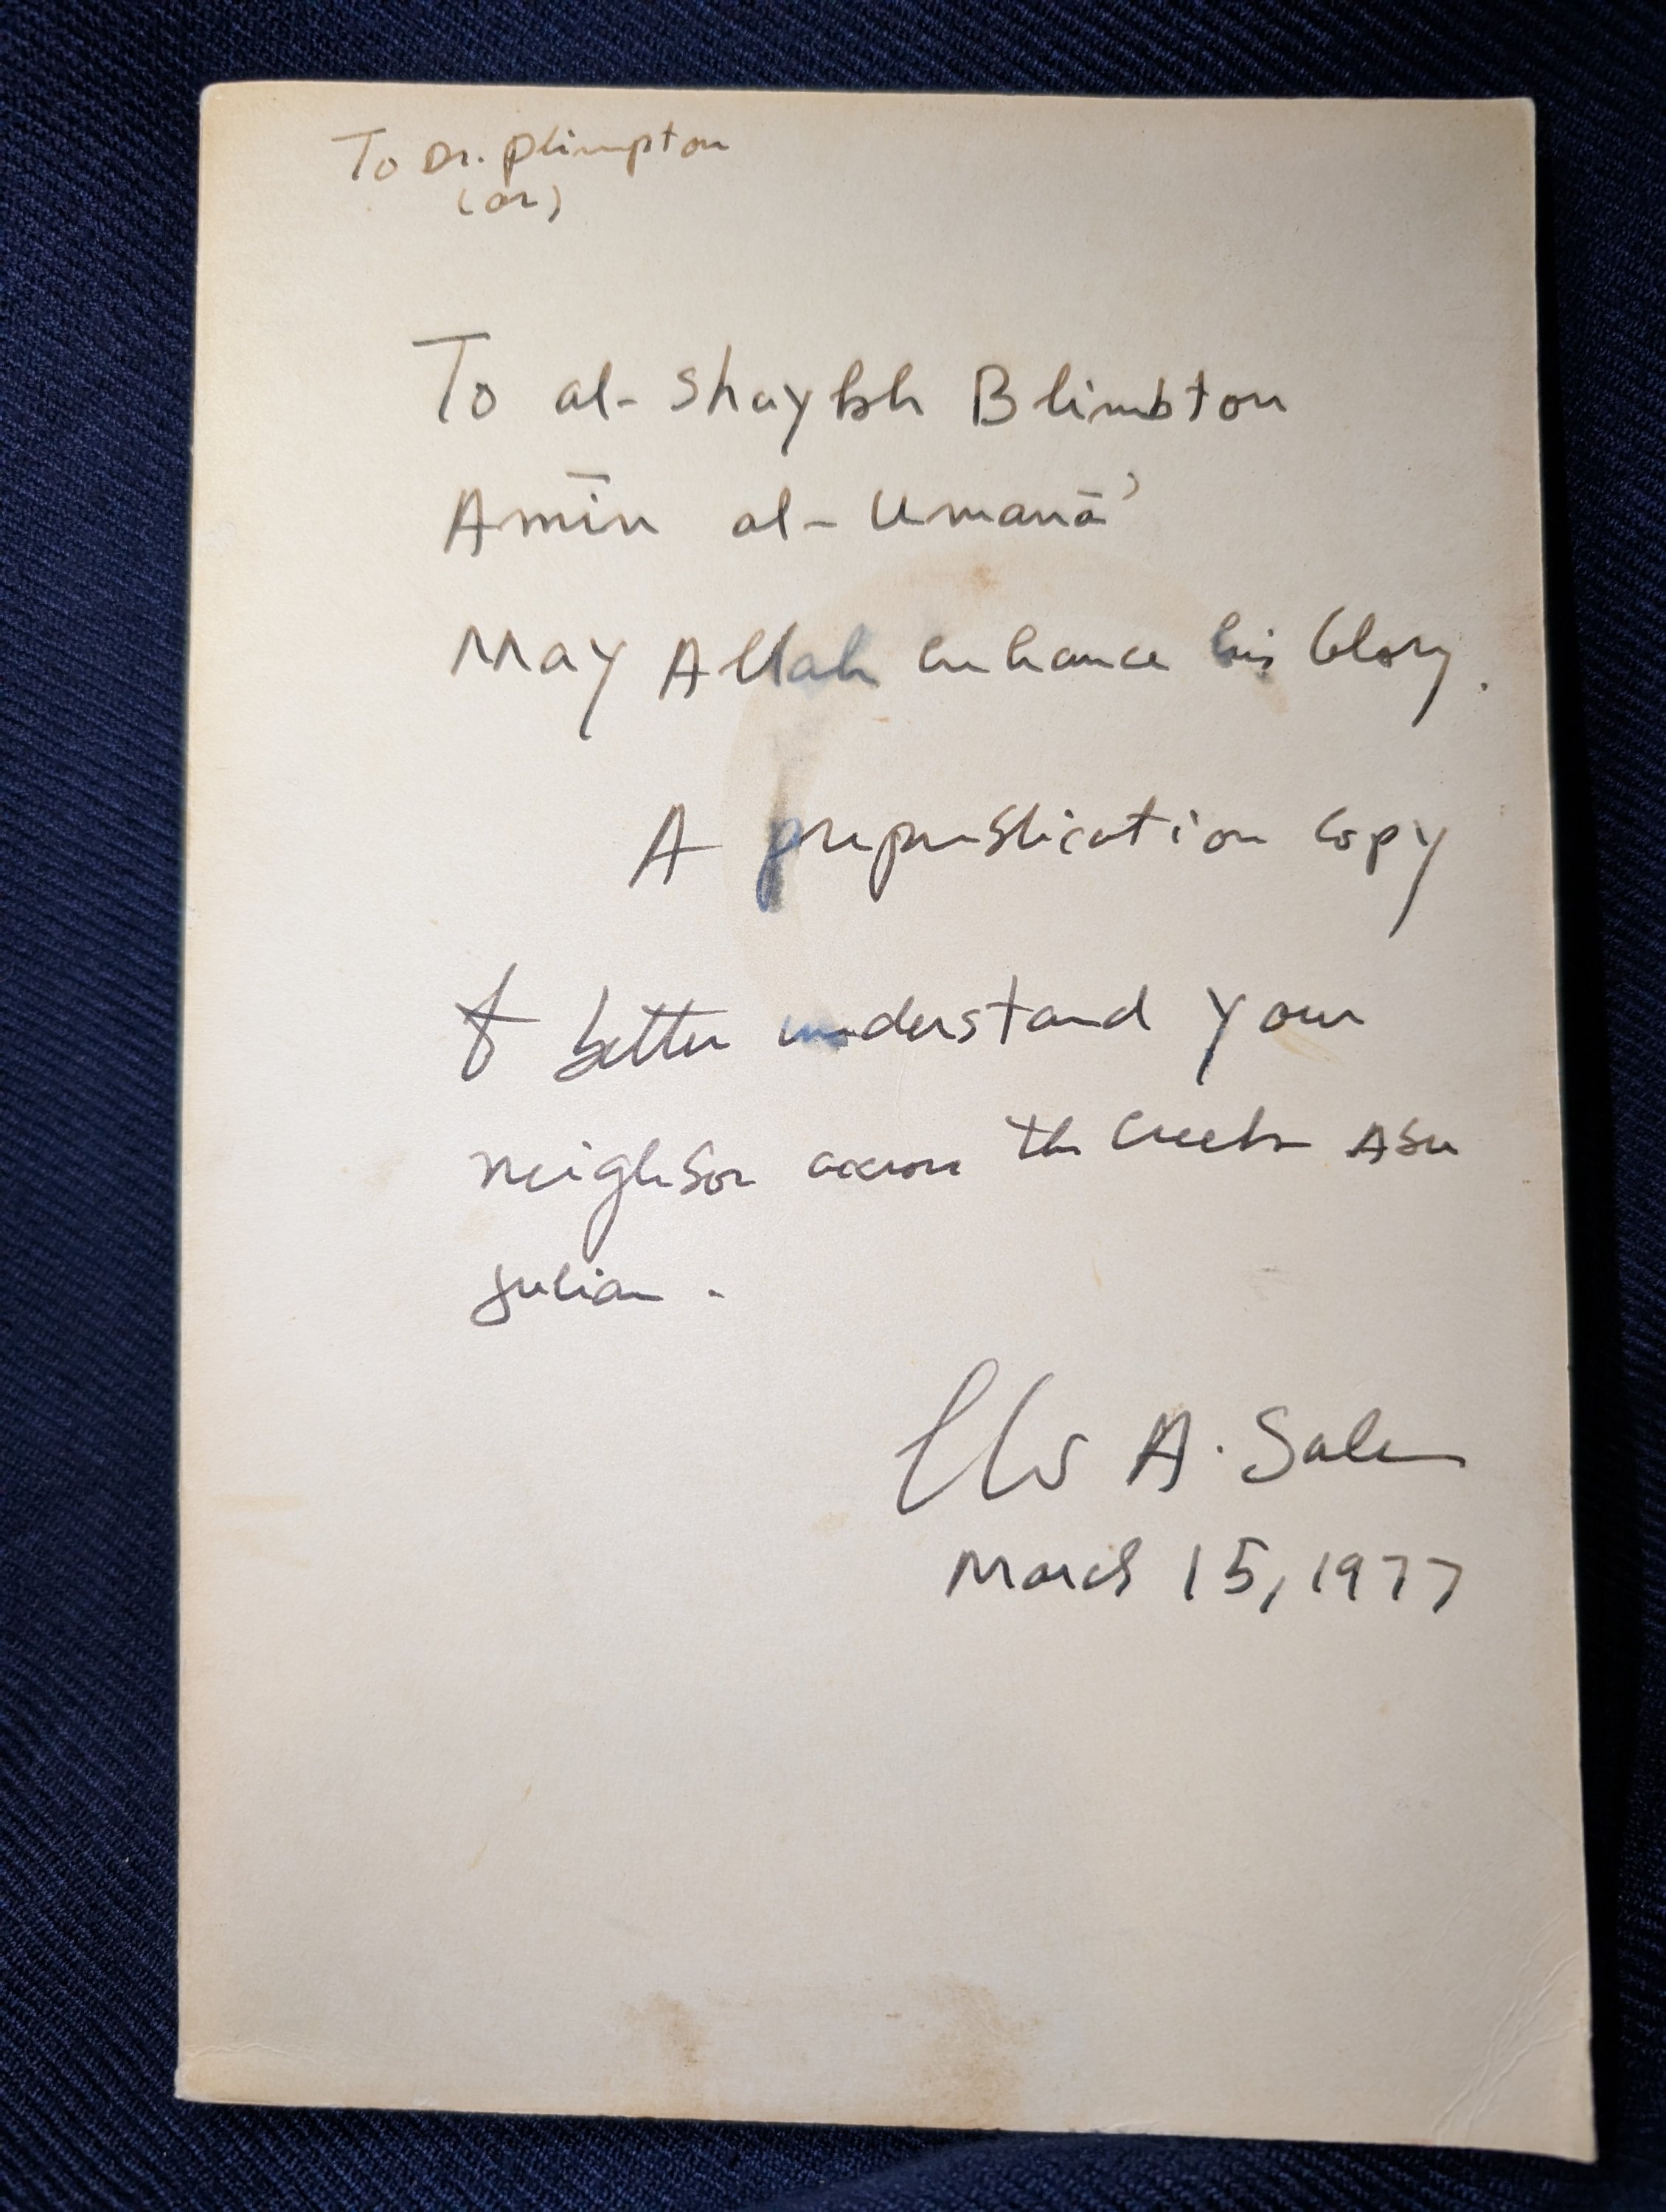 To Dr. Plimpton
(or)
To al-Shaykh Blimbton
Amīn al-Umanā'
May Allah enhance his Glory.
A prepublication copy
to better understand your
neighbor across the Creek Abu
Julian.
Elie A. Salem
March 15, 1977